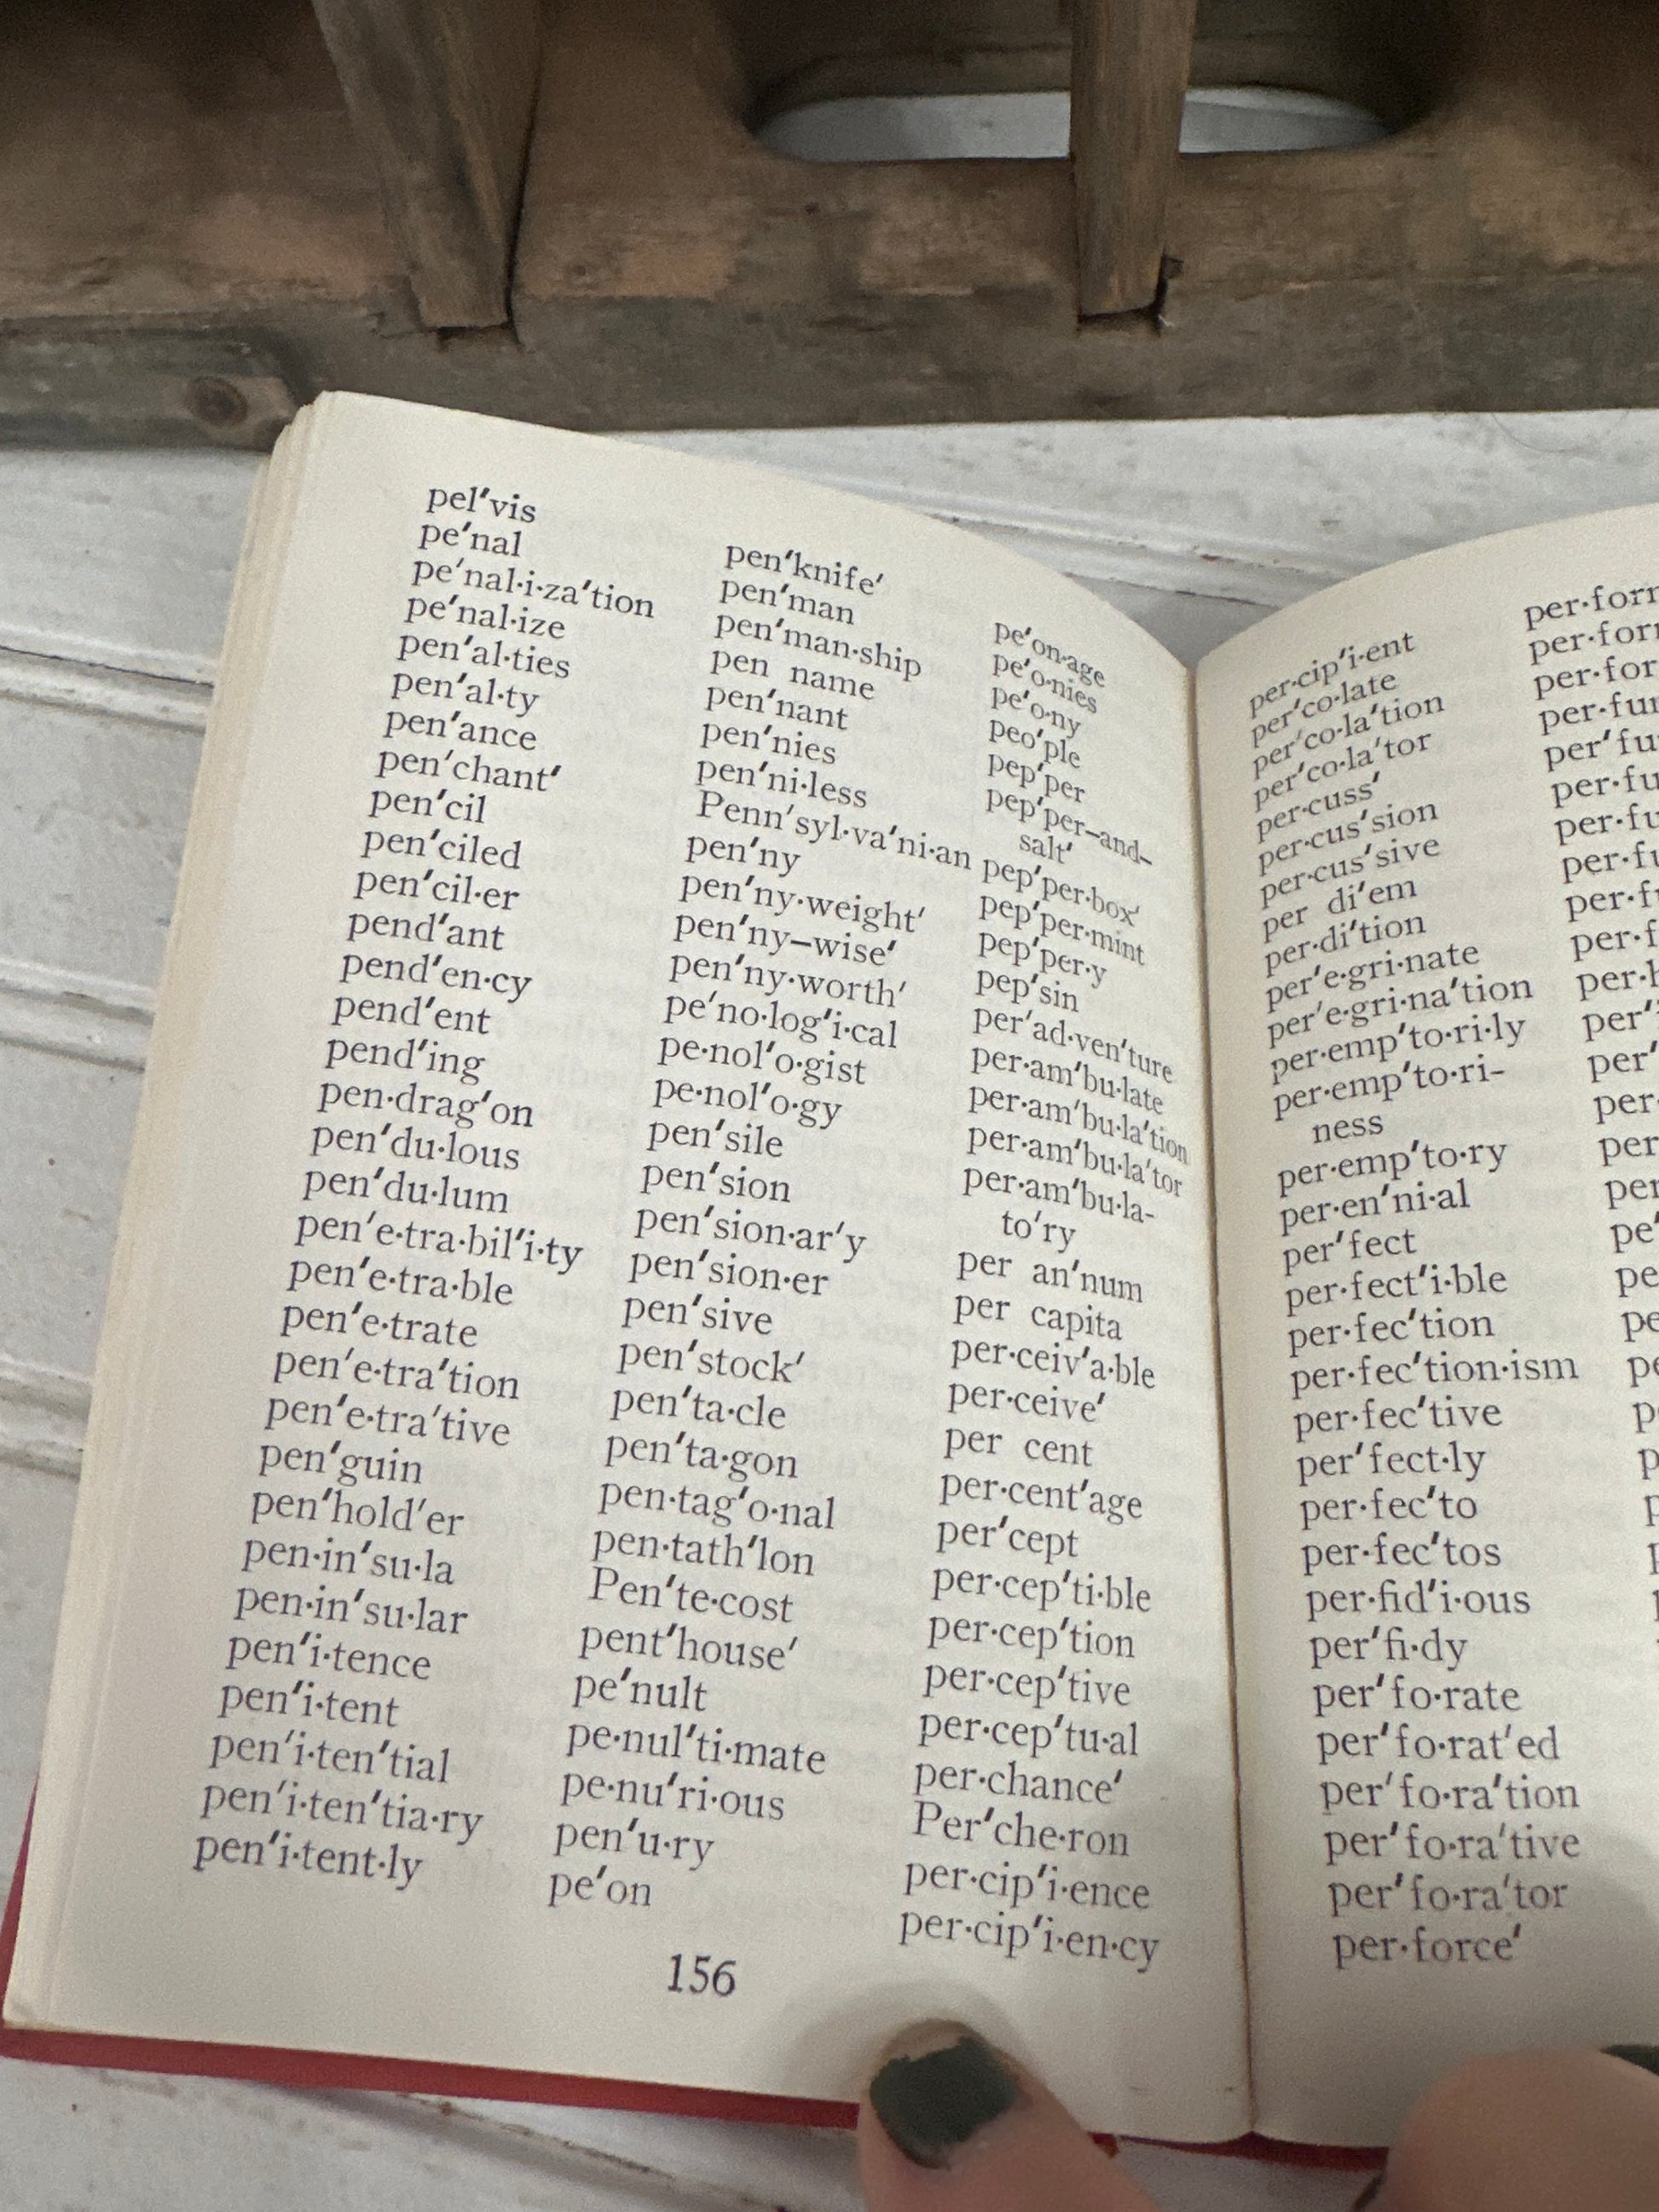 pel′vis
pe′nal
pe′nal·i·za′tion
pe′nal·ize
pen′al·ties
pen′al·ty
pen′ance
pen′chant′
pen′cil
pen′ciled
pen′cil·er
pend′ant
pend′en·cy
pend′ent
pend′ing
pen·drag′on
pen′du·lous
pen′du·lum
pen′e·tra·bil′i·ty
pen′e·tra·ble
pen′e·trate
pen′e·tra′tion
pen′e·tra′tive
pen′guin
pen′hold′er
pen·in′su·la
pen·in′su·lar
pen′i·tence
pen′i·tent
pen′i·ten′tial
pen′i·ten′tia·ry
pen′i·tent·ly
pen′knife′
pen′man
pen′man·ship
pen name
pen′nant
pen′nies
pen′ni·less
Penn′syl·va′ni·an
pen′ny
pen′ny·weight′
pen′ny–wise′
pen′ny·worth′
pe′no·log′i·cal
pe·nol′o·gist
pe·nol′o·gy
pen′sile
pen′sion
pen′sion·ar′y
pen′sion·er
pen′sive
pen′stock′
pen′ta·cle
pen′ta·gon
pen·tag′o·nal
pen·tath′lon
Pen′te·cost
pent′house′
pe′nult
pe·nul′ti·mate
pe·nu′ri·ous
pen′u·ry
pe′on
pe′on·age
pe′o·nies
pe′o·ny
peo′ple
pep′per
pep′per–and–
salt′
pep′per·box′
pep′per·mint
pep′per·y
pep′sin
per′ad·ven′ture
per·am′bu·late
per·am′bu·la′tion
per·am′bu·la′tor
per·am′bu·la-
to′ry
per an′num
per capita
per·ceiv′a·ble
per·ceive′
per cent
per·cent′age
per′cept
per·cep′ti·ble
per·cep′tion
per·cep′tive
per·cep′tu·al
per·chance′
Per′che·ron
per·cip′i·ence
per·cip′i·en·cy
156
per·cip′i·ent
per′co·late
per′co·la′tion
per′co·la′tor
per·cuss′
per·cus′sion
per·cus′sive
per di′em
per·di′tion
per′e·gri·nate
per′e·gri·na′tion
per·emp′to·ri·ly
per·emp′to·ri-
ness
per·emp′to·ry
per·en′ni·al
per′fect
per·fect′i·ble
per·fec′tion
per·fec′tion·ism
per·fec′tive
per′fect·ly
per·fec′to
per·fec′tos
per·fid′i·ous
per′fi·dy
per′fo·rate
per′fo·rat′ed
per′fo·ra′tion
per′fo·ra′tive
per′fo·ra′tor
per·force′